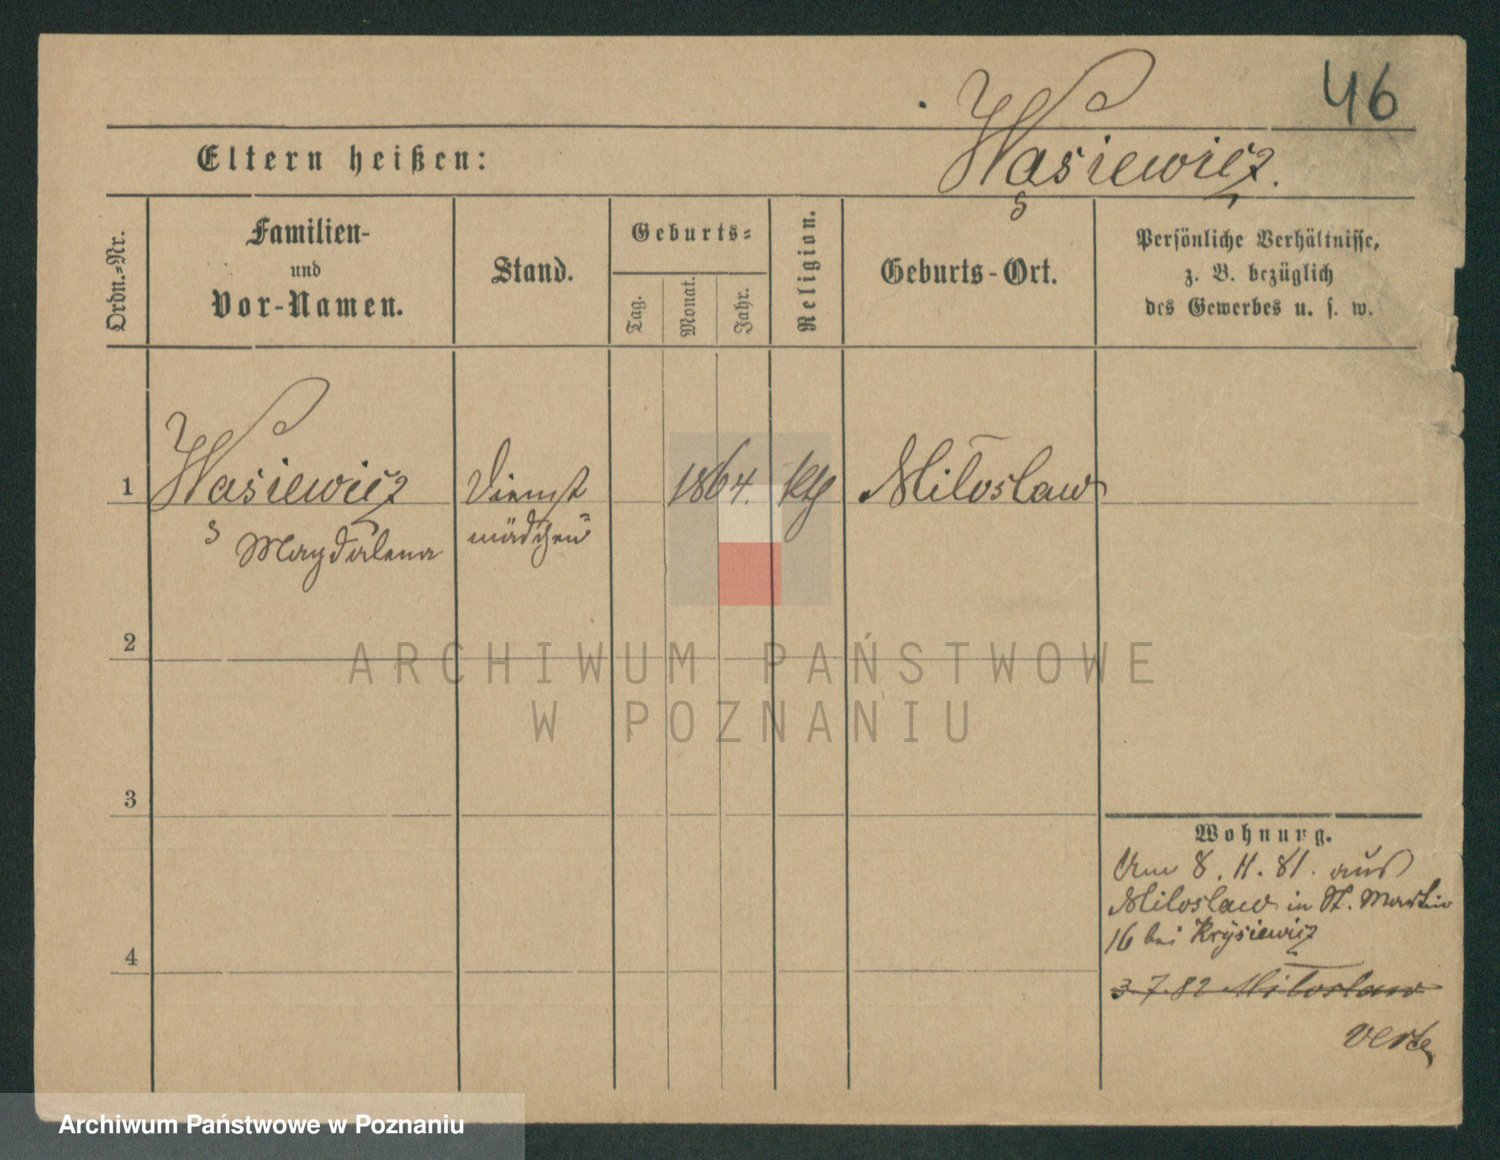 46
Wasiewicz.
Eltern heißen:
Ordn.-Nr.
Familien-
und
Vor-Namen.
Stand.
Geburts-
Tag.
Monat.
Jahr.
Religion.
Geburts-Ort.
Persönliche Verhältnisse,
z. B. bezüglich
des Gewerbes u. s. w.
1 Wasiewicz Dienst 1864. kth Miloslaw
Magdalena mädchen
2
3
4
Wohnung.
Am 8. 11. 81. aus
Miloslaw in St. Martin
16 bei Krysiewicz
3.7.82 Miloslaw
verte
ARCHIWUM PAŃSTWOWE
W POZNANIU
Archiwum Państwowe w Poznaniu